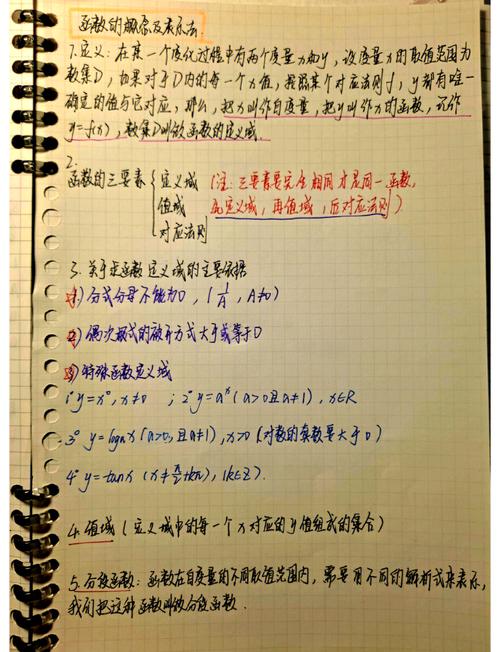 函数的概念及表示法.
1.定义:在某一个变化过程中有两个变量x和y,设变量x的取值范围为
数集D,如果对于D内的每一个x值,按照某个对应法则f,y都有唯一
确定的值与它对应,那么,把x叫作自变量,把y叫作x的函数,记作
y=f(x),数集D叫做函数的定义域.
2.
函数的三要素 { 定义域 (注:三要素要完全相同才是同一函数,
值域 先定义域,再值域,后对应法则)
对应法则
3.关于求函数定义域的主要依据
1)分式分母不能为0,(1/A,A≠0)
2)偶次根式的被开方式大于或等于0
3)特殊函数定义域
1°y=x⁰,x≠0 ;2°y=aˣ(a>0且a≠1),x∈R
3° y=logₐx(a>0,且a≠1),x>0(对数的真数要大于0)
4° y=tanx (x≠π/2+kπ),(k∈Z).
4.值域(定义域中的每一个x对应的y值组成的集合)
5.分段函数:函数在自变量的不同取值范围内,需要用不同的解析式来表示,
我们把这种函数叫做分段函数.